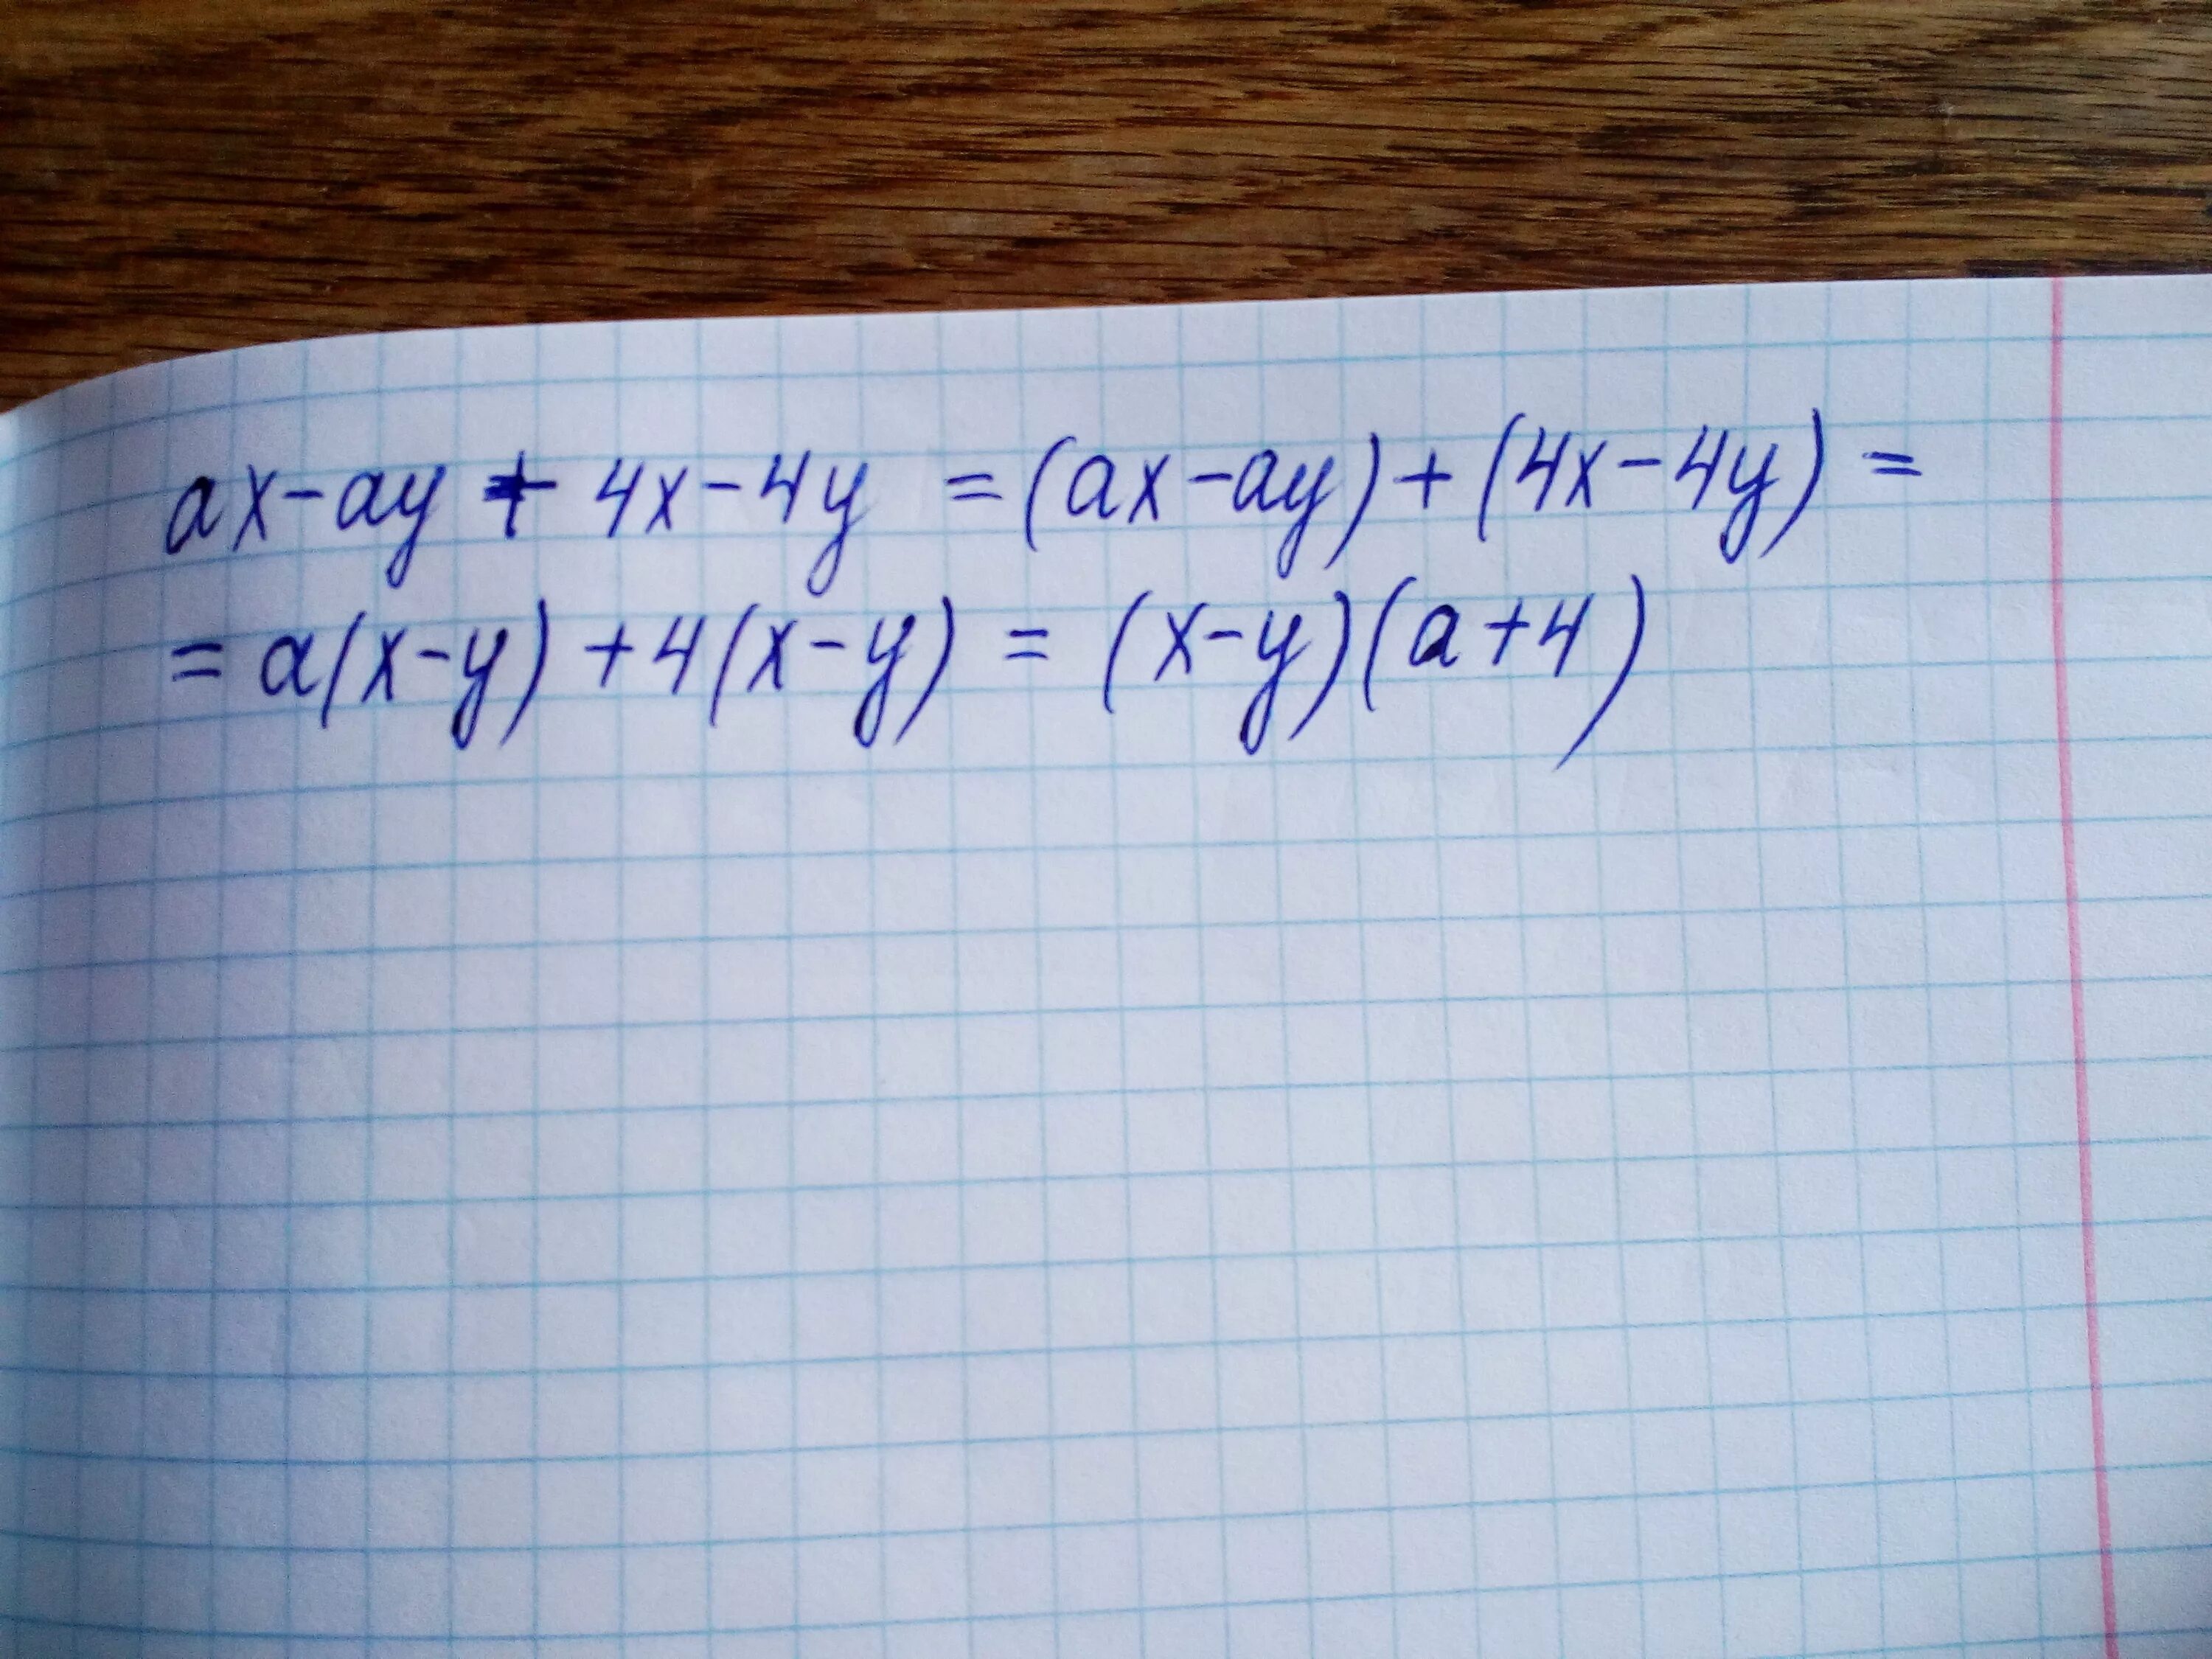 ax-ay + 4x-4y = (ax-ay)+(4x-4y) =
= a(x-y) +4(x-y) = (x-y)(a+4)